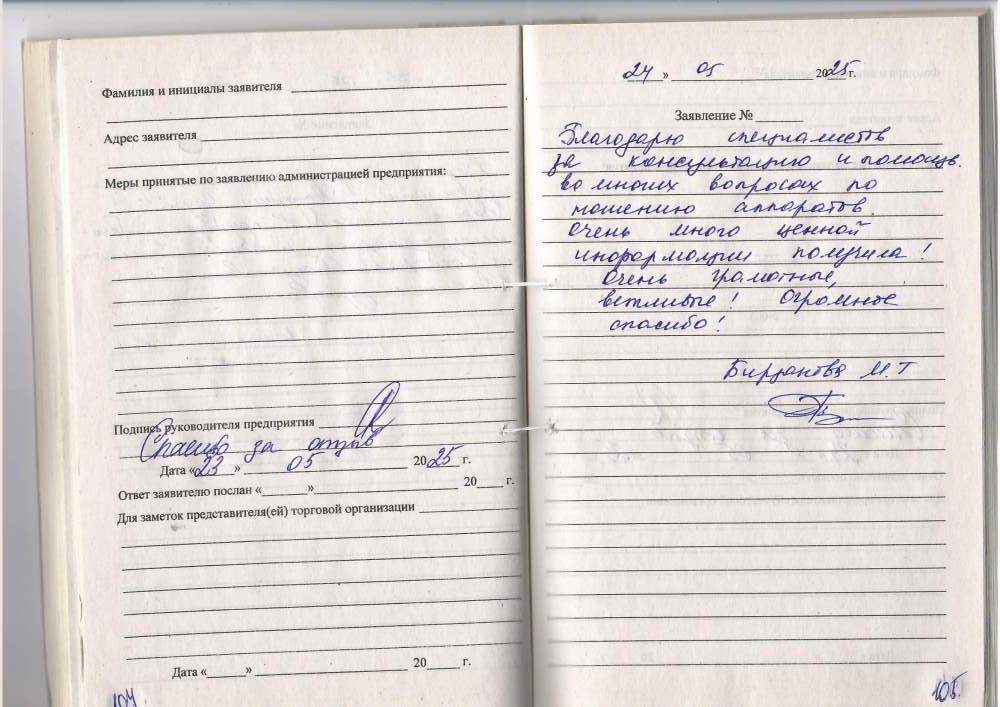 Фамилия и инициалы заявителя
Адрес заявителя
Меры принятые по заявлению администрацией предприятия:
Подпись руководителя предприятия
Спасибо за отзыв
Дата «23» 05 2025 г.
Ответ заявителю послан «      » 20 г.
Для заметок представителя(ей) торговой организации
Дата «      » 20 г.
104
24 » 05 2025 г.
Заявление №
Благодарю специалистов
за консультацию и помощь
во многих вопросах по
ношению аппаратов.
Очень много ценной
информации получила!
Очень грамотные,
вежливые! Огромное
спасибо!
М.Т
105.